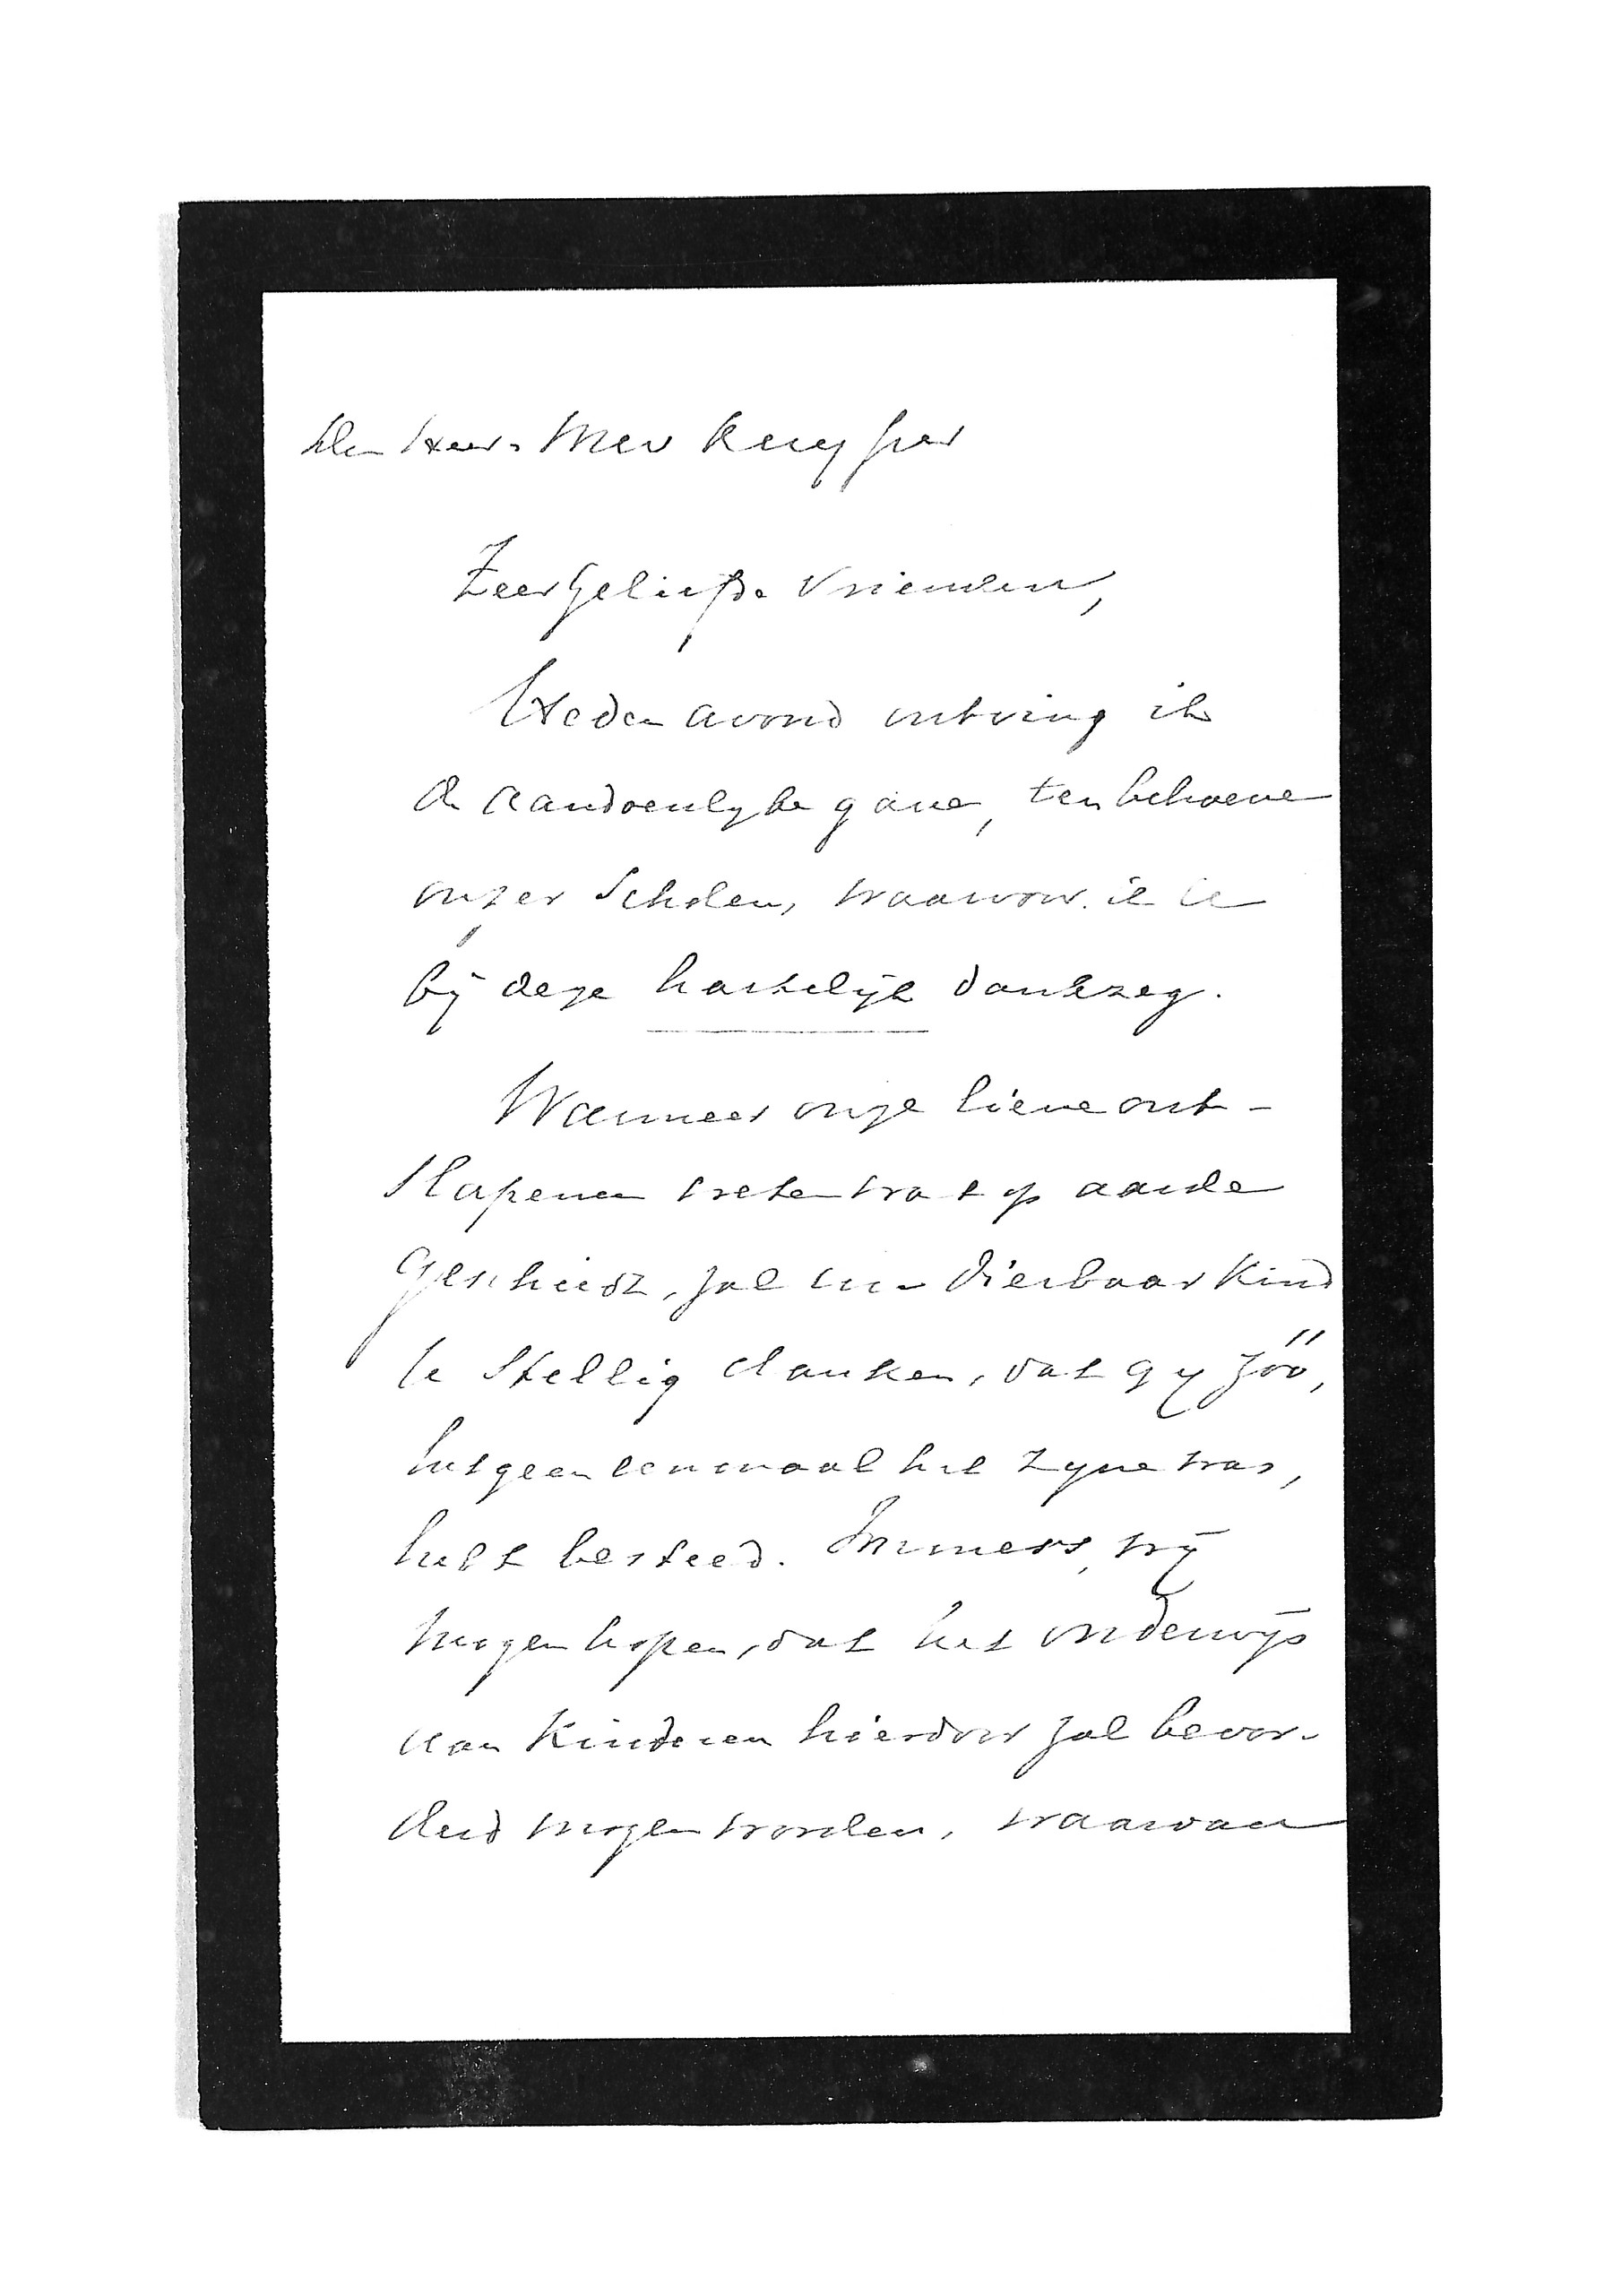 Den Heer & Mev Kuyper
Zeer Geliefde Vrienden,
Heden avond ontving ik
de aandoenlyke gave, ten behoeve
onzer Scholen, waarvoor ik U
bij deze hartelijk dankzeg.
Wanneer onze lieve ont-
slapenen weten wat op aarde
geschiedt, zal uw dierbaar Kind
U Stellig danken, dat gy zóó,
hetgeen eenmaal het zyne was,
hebt besteed. Immers, wij
mogen hopen, dat het onderwijs
aan Kinderen hierdoor zal bevor-
derd mogen worden, waarvan